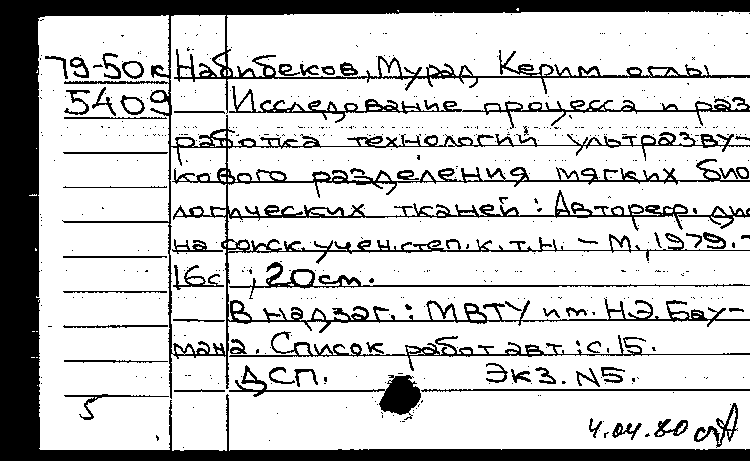 79-50к Набибеков, Мурад Керим оглы
5409 Исследование процесса и раз
работка технологий ультразву-
кового разделения мягких био
логических тканей : Автореф. дис
на соиск. учен. степ. к. т. н. – М., 1979. –
16с ; 20см.
В надзаг. : МВТУ им. Н.Э. Бау-
мана. Список работ авт. : с. 15.
ДСП. Экз. N5.
5
4.04.80